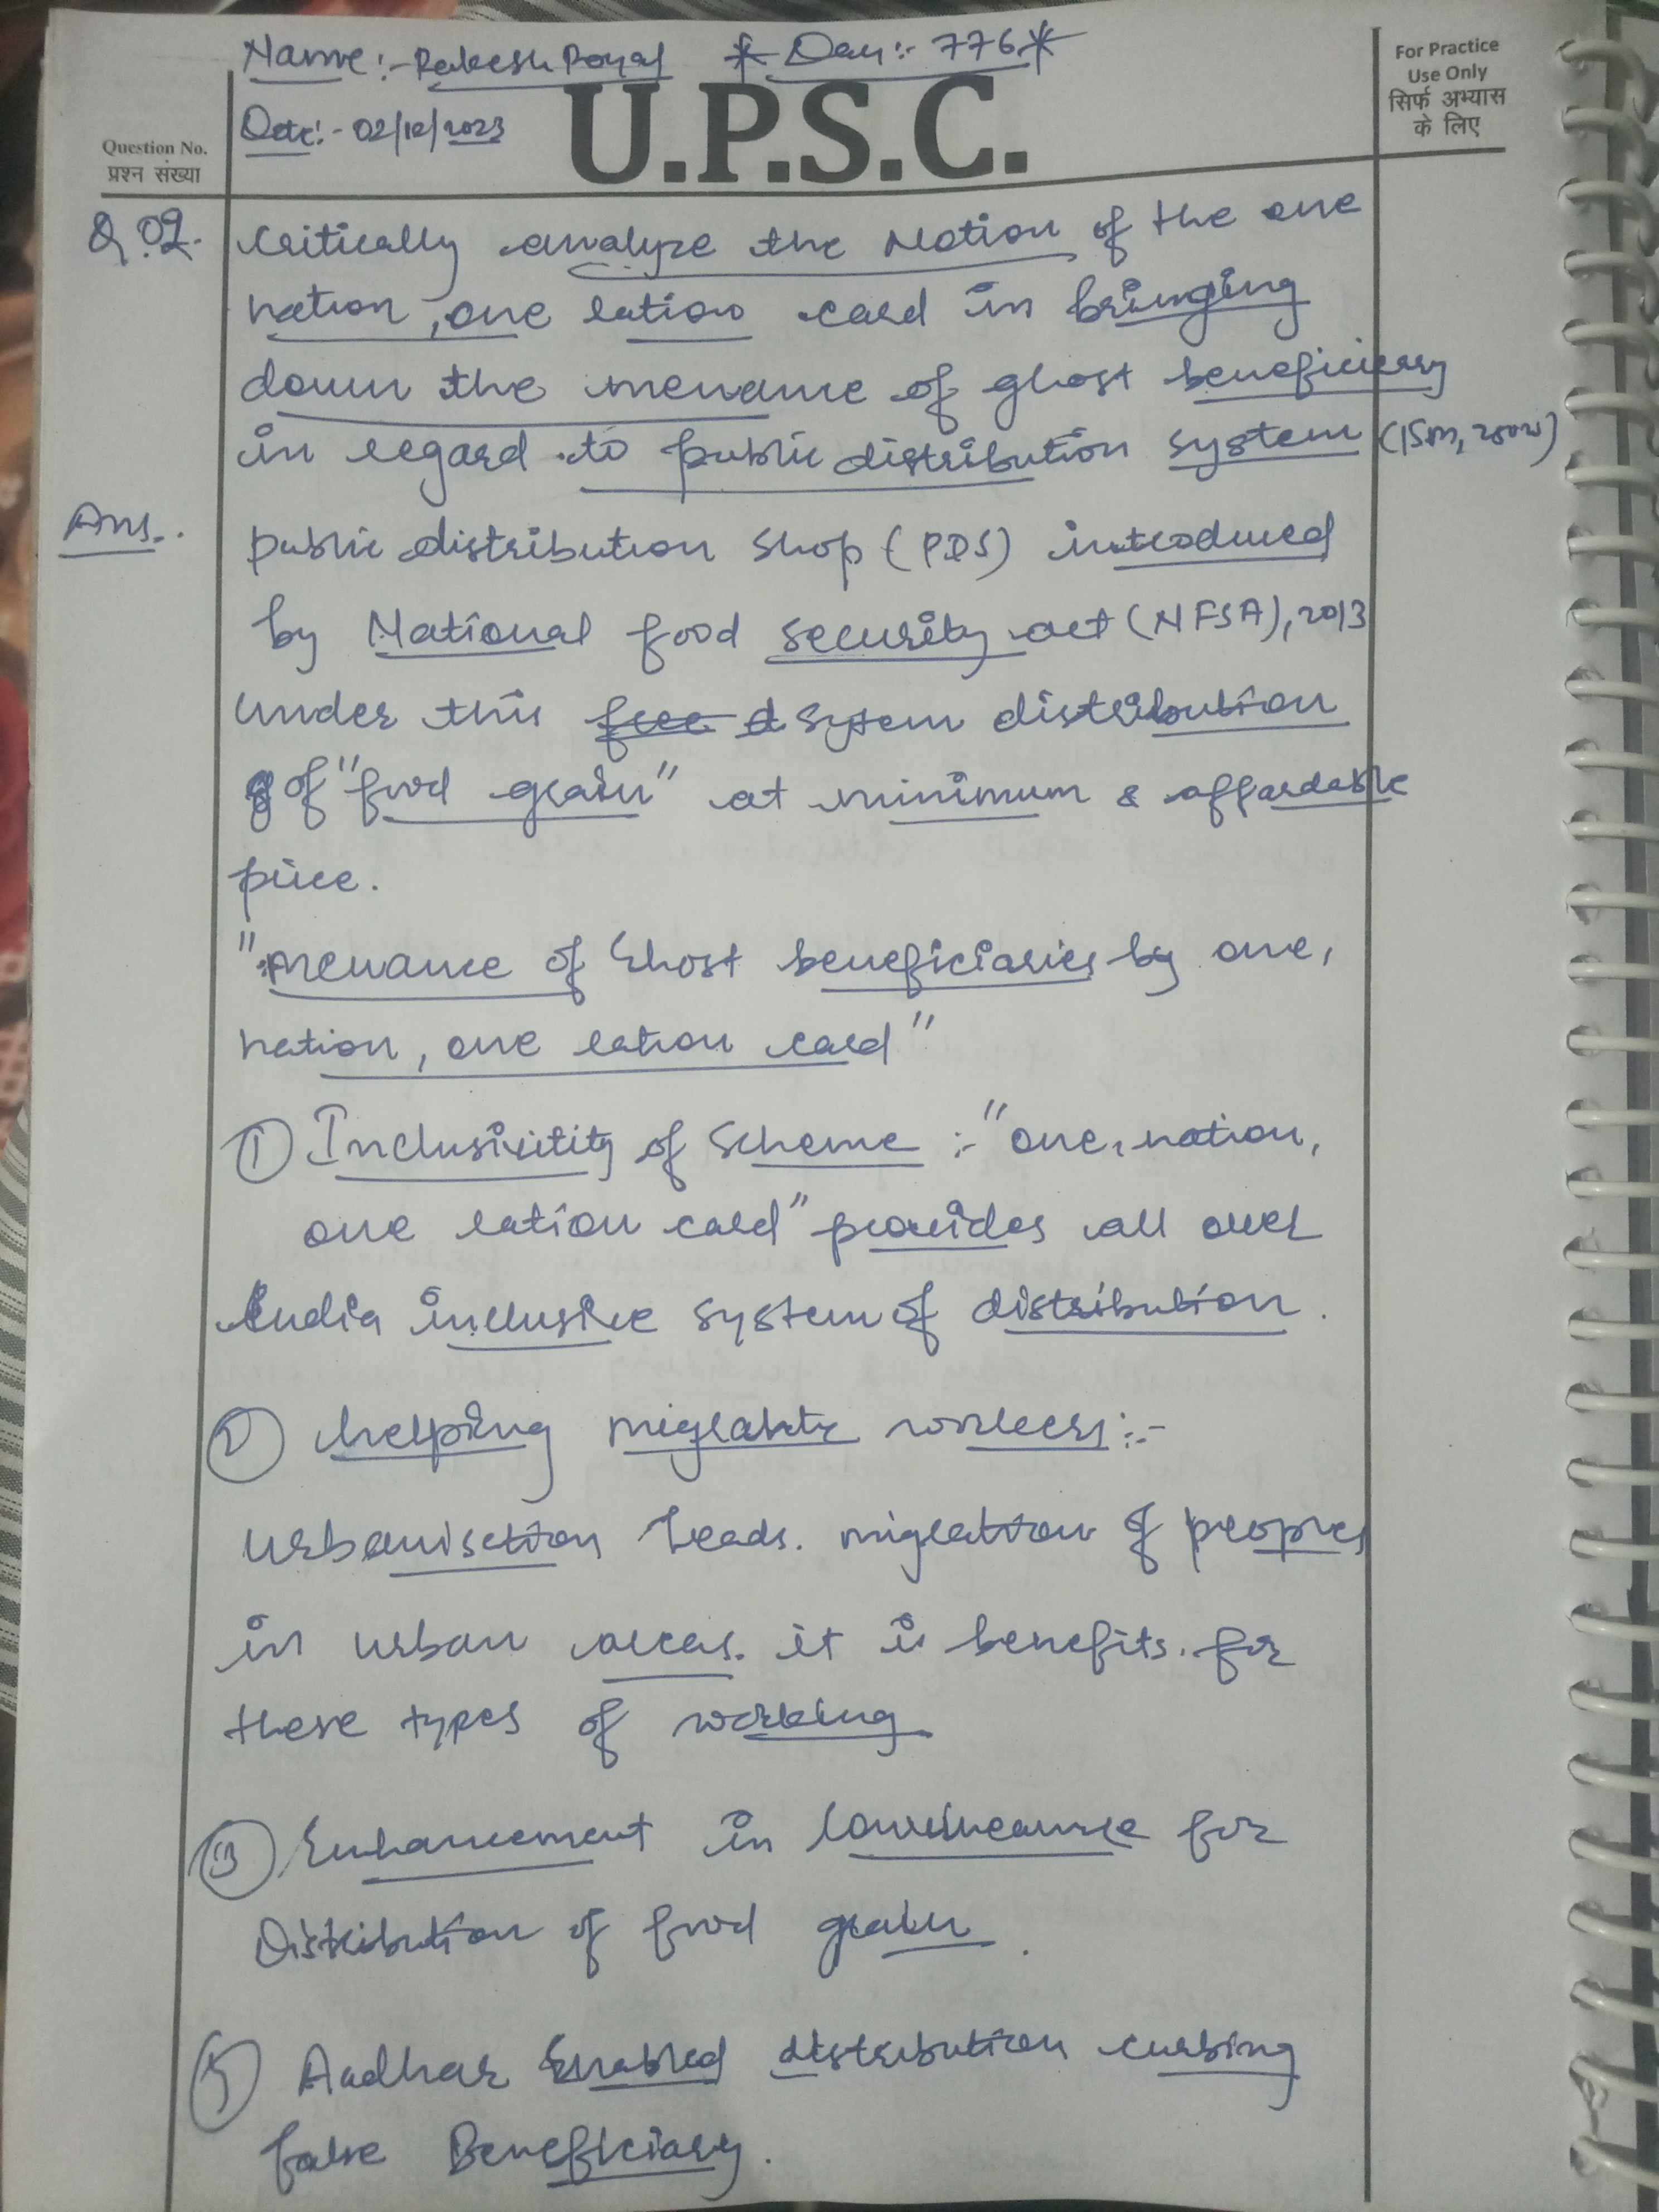 Name:- Rakesh Poyal * Day:- 776 *
For Practice
Use Only
सिर्फ अभ्यास
के लिए
Date:- 02/12/2023
U.P.S.C.
Question No.
प्रश्न संख्या
Q.02. Critically analyze the Notion of the one
nation, one ration card in bringing
down the menance of ghost beneficiary
in regard to public distribution system (15m, 250w)
Ans. public distribution Shop (PDS) introduced
by National food security act (NFSA), 2013
under this system distribution
of "food grain" at minimum & affardable
price.
"menance of Ghost beneficiaries by one,
nation, one ration card"
① Inclusivitity of Scheme :- "one, nation,
one ration card" provides all over
India inclusive system of distribution.
② helping migrants workers:-
Urbanisation leads. migration of peoples
in urban areas. it is benefits. for
these types of working
③ Enhancement in for
Distribution of food grain.
Aadhar Enabled distribution curbing
false Beneficiary.